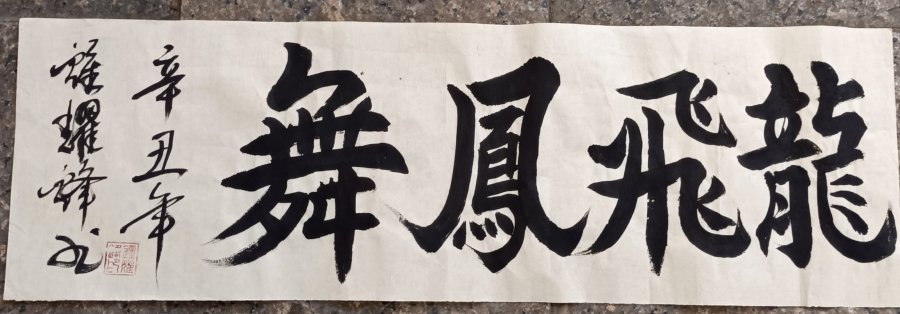 龍飛鳳舞
辛丑年
耀鋒书